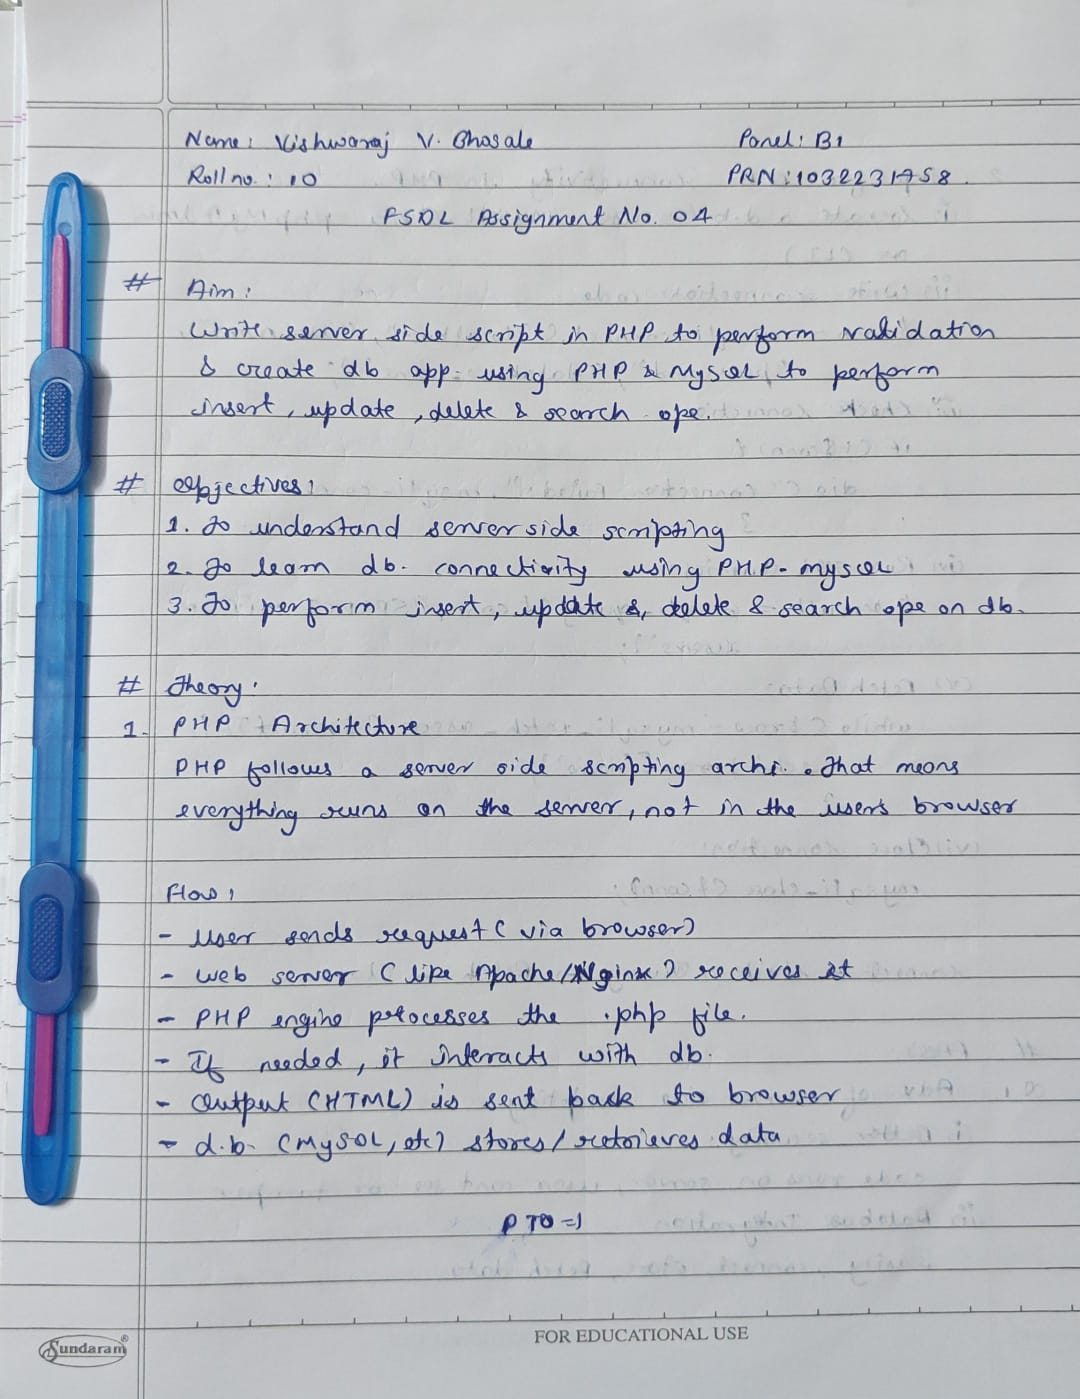 Name: Vishwaraj V. Bhosale Panel: B1
Roll no.: 10 PRN: 1032231758.
FSDL Assignment No. 04
# Aim:
Write server side script in PHP to perform validation
& create db app. using PHP & MySQL, to perform
insert, update, delete & search ope.
# Objectives:
1. To understand server side scripting
2. To learn db. connectivity using PHP-mysql
3. To perform insert, update &, delete & search ope on db.
# Theory:
1. PHP Architecture
PHP follows a server side scripting archi. That means
everything runs on the server, not in the users browser
Flow:
- User sends request (via browser)
- Web server (like Apache/Nginx) receives it
- PHP engine processes the .php file.
- If needed, it interacts with db.
- Output (HTML) is sent back to browser
- d.b. (MySQL, etc) stores/retrieves data
PTO =)
Sundaram®
FOR EDUCATIONAL USE